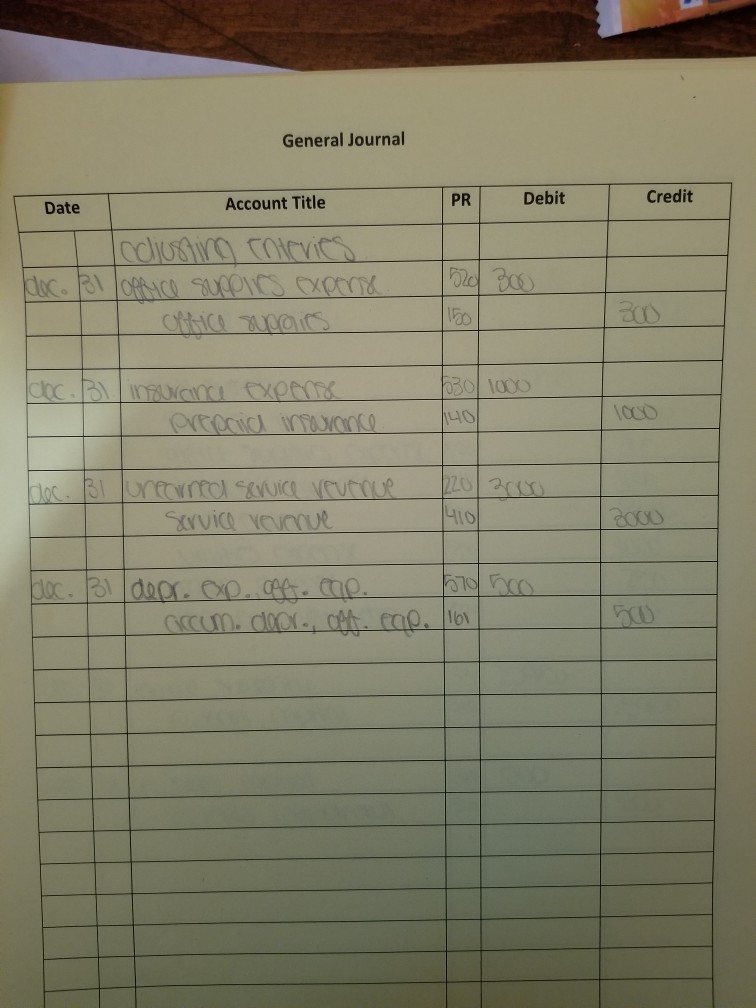 General Journal
Date Account Title PR Debit Credit
adjusting enteries
dec. 31 office supplies expense 520 300
office supplies 150 300
dec. 31 insurance expense 530 1000
prepaid insurance 140 1000
dec. 31 unearned service revenue 220 3000
service revenue 410 3000
dec. 31 depr. exp., off. eqp. 570 500
accum. depr., off. eqp. 161 500